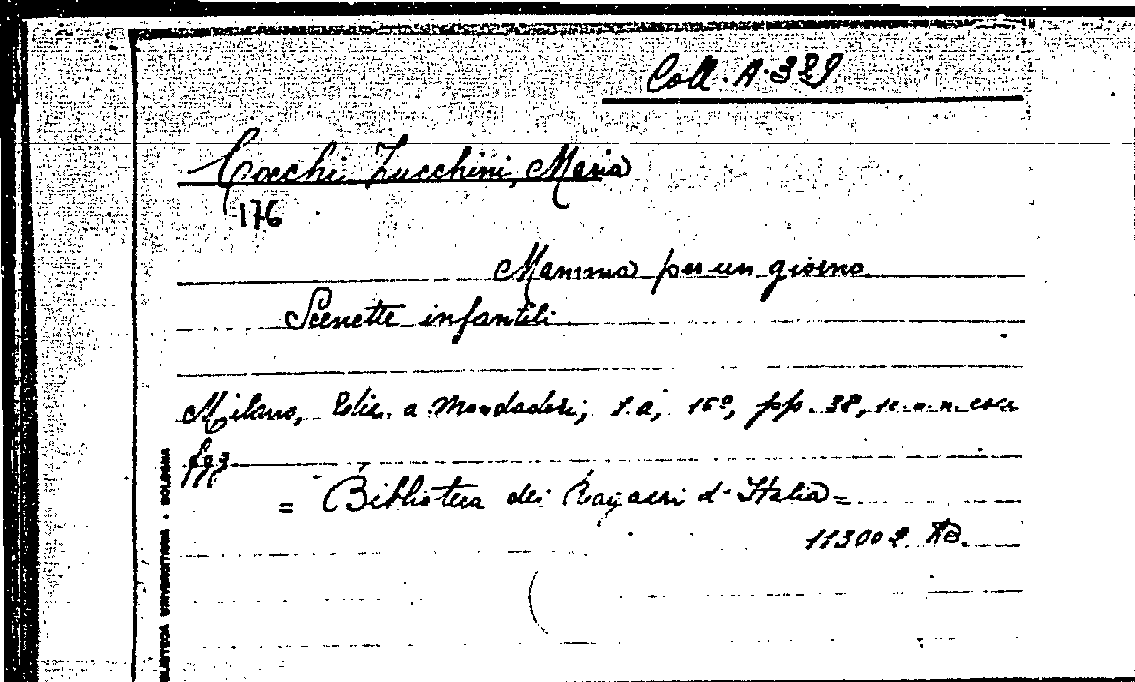 Coll. A. 329
Cocchi Zucchini, Maria
176
Mamma per un giorno
Scenette infantili
Milano, Ediz. a Mondadori, s.a, 16º, pp. 38, n.n. con
figg
= Biblioteca dei Ragazzi d'Italia =
113002. AB.
BIBLIOTECA UNIVERSITARIA • BOLOGNA